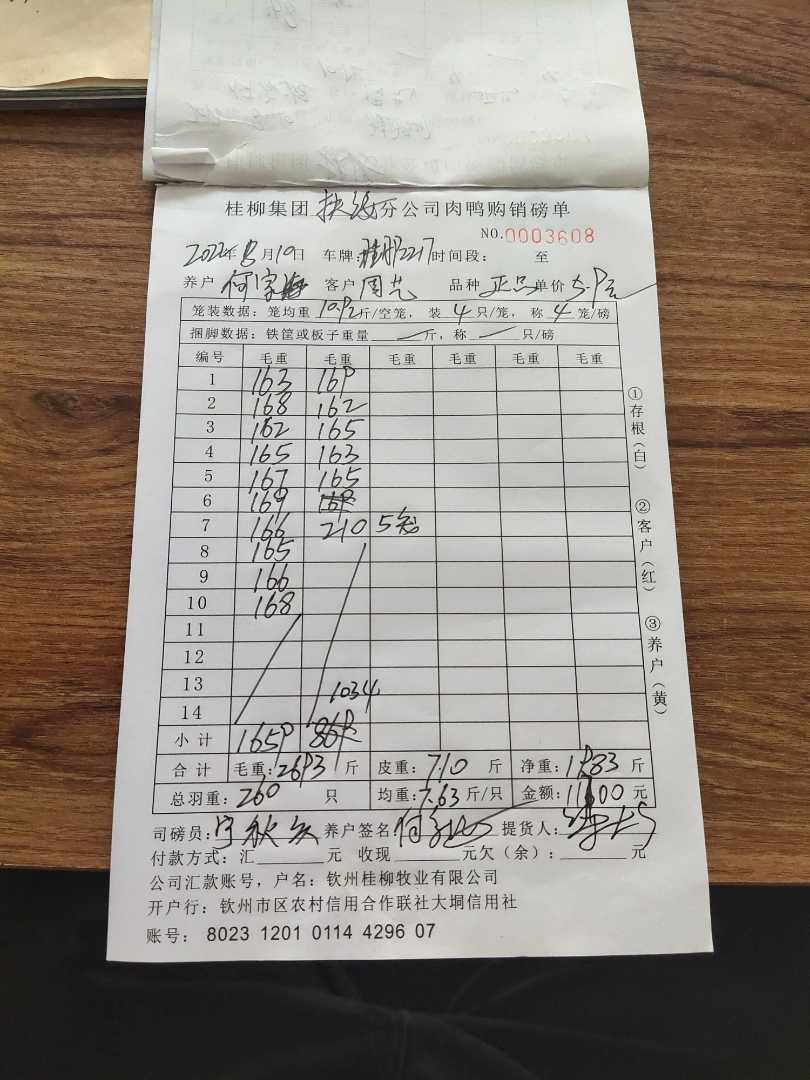 桂柳集团 分公司肉鸭购销磅单
NO.0003608
2022年8月10日 车牌: 2217 时间段: 至
养户 何家海 客户 周艺 品种 正品 单价 5.9元
笼装数据: 笼均重 10.92 斤/空笼, 装 4 只/笼, 称 4 笼/磅
捆脚数据: 铁筐或板子重量 斤, 称 只/磅
编号 毛重 毛重 毛重 毛重 毛重 毛重
1 163 169
2 168 162
3 162 165
4 165 163
5 167 165
6 169
7 166 210 5笼
8 165
9 166
10 168
11
12
13
1034
14
小计 1659
合计 毛重: 2693 斤 皮重: 710 斤 净重: 1983 斤
总羽重: 260 只 均重: 7.63 斤/只 金额: 11700 元
司磅员: 养户签名 提货人:
付款方式: 汇 元 收现 元欠(余): 元
公司汇款账号,户名: 钦州桂柳牧业有限公司
开户行: 钦州市区农村信用合作联社大垌信用社
账号: 8023 1201 0114 4296 07
①存根(白)
②客户(红)
③养户(黄)